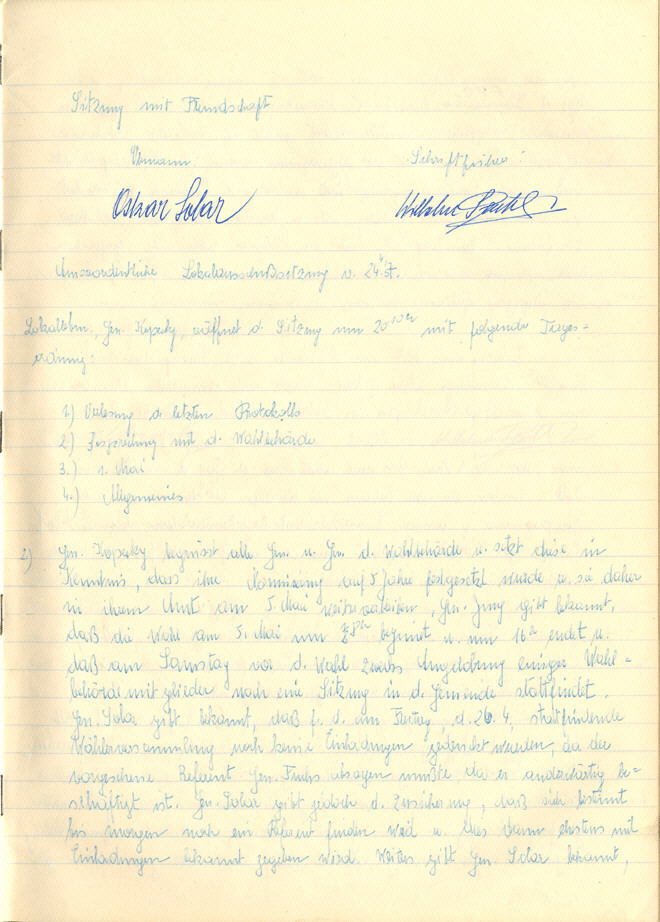 Sitzung mit Freundschaft
Obmann Schriftführer:
Oskar Solar Wilhelm
Ausserordentliche Lokalausschußsitzung v. 24.4.57.
Lokalobm. Gen. Kopecky, eröffnet d. Sitzung um 20 Uhr mit folgender Tages=
ordnung:
1.) Verlesung d. letzten Protokolls
2.) Besprechung mit d. Wahlbehörde
3.) 1. Mai
4.) Allgemeines
2) Gen. Kopecky begrüsst alle Gen. u. Gen. d. Wahlbehörde u. setzt diese in
Kenntnis, dass ihre Nominierung auf 5 Jahre festgesetzt wurde u. sie daher
in ihrem Amt am 5. Mai weiter verbleiben, Gen. Jung gibt bekannt,
daß die Wahl am 5. Mai um beginnt u. um 16h endet u.
daß am Samstag vor d. Wahl zwecks Angelobung einiger Wahl=
behördemitglieder noch eine Sitzung in d. Gemeinde stattfindet.
Gen. Solar gibt bekannt, daß f. d. am Freitag, d. 26.4, stattfindende
Wählerversammlung noch keine Einladungen gedruckt wurden, da der
vorgesehene Referent Gen. Fuchs absagen mußte, da er anderwärtig be=
schäftigt ist. Gen. Solar gibt jedoch d. Versicherung, daß sich bestimmt
bis morgen noch ein Referent finden wird u. dies dann ehstens mit
Einladungen bekannt gegeben wird. Weiters gibt Gen. Solar bekannt,